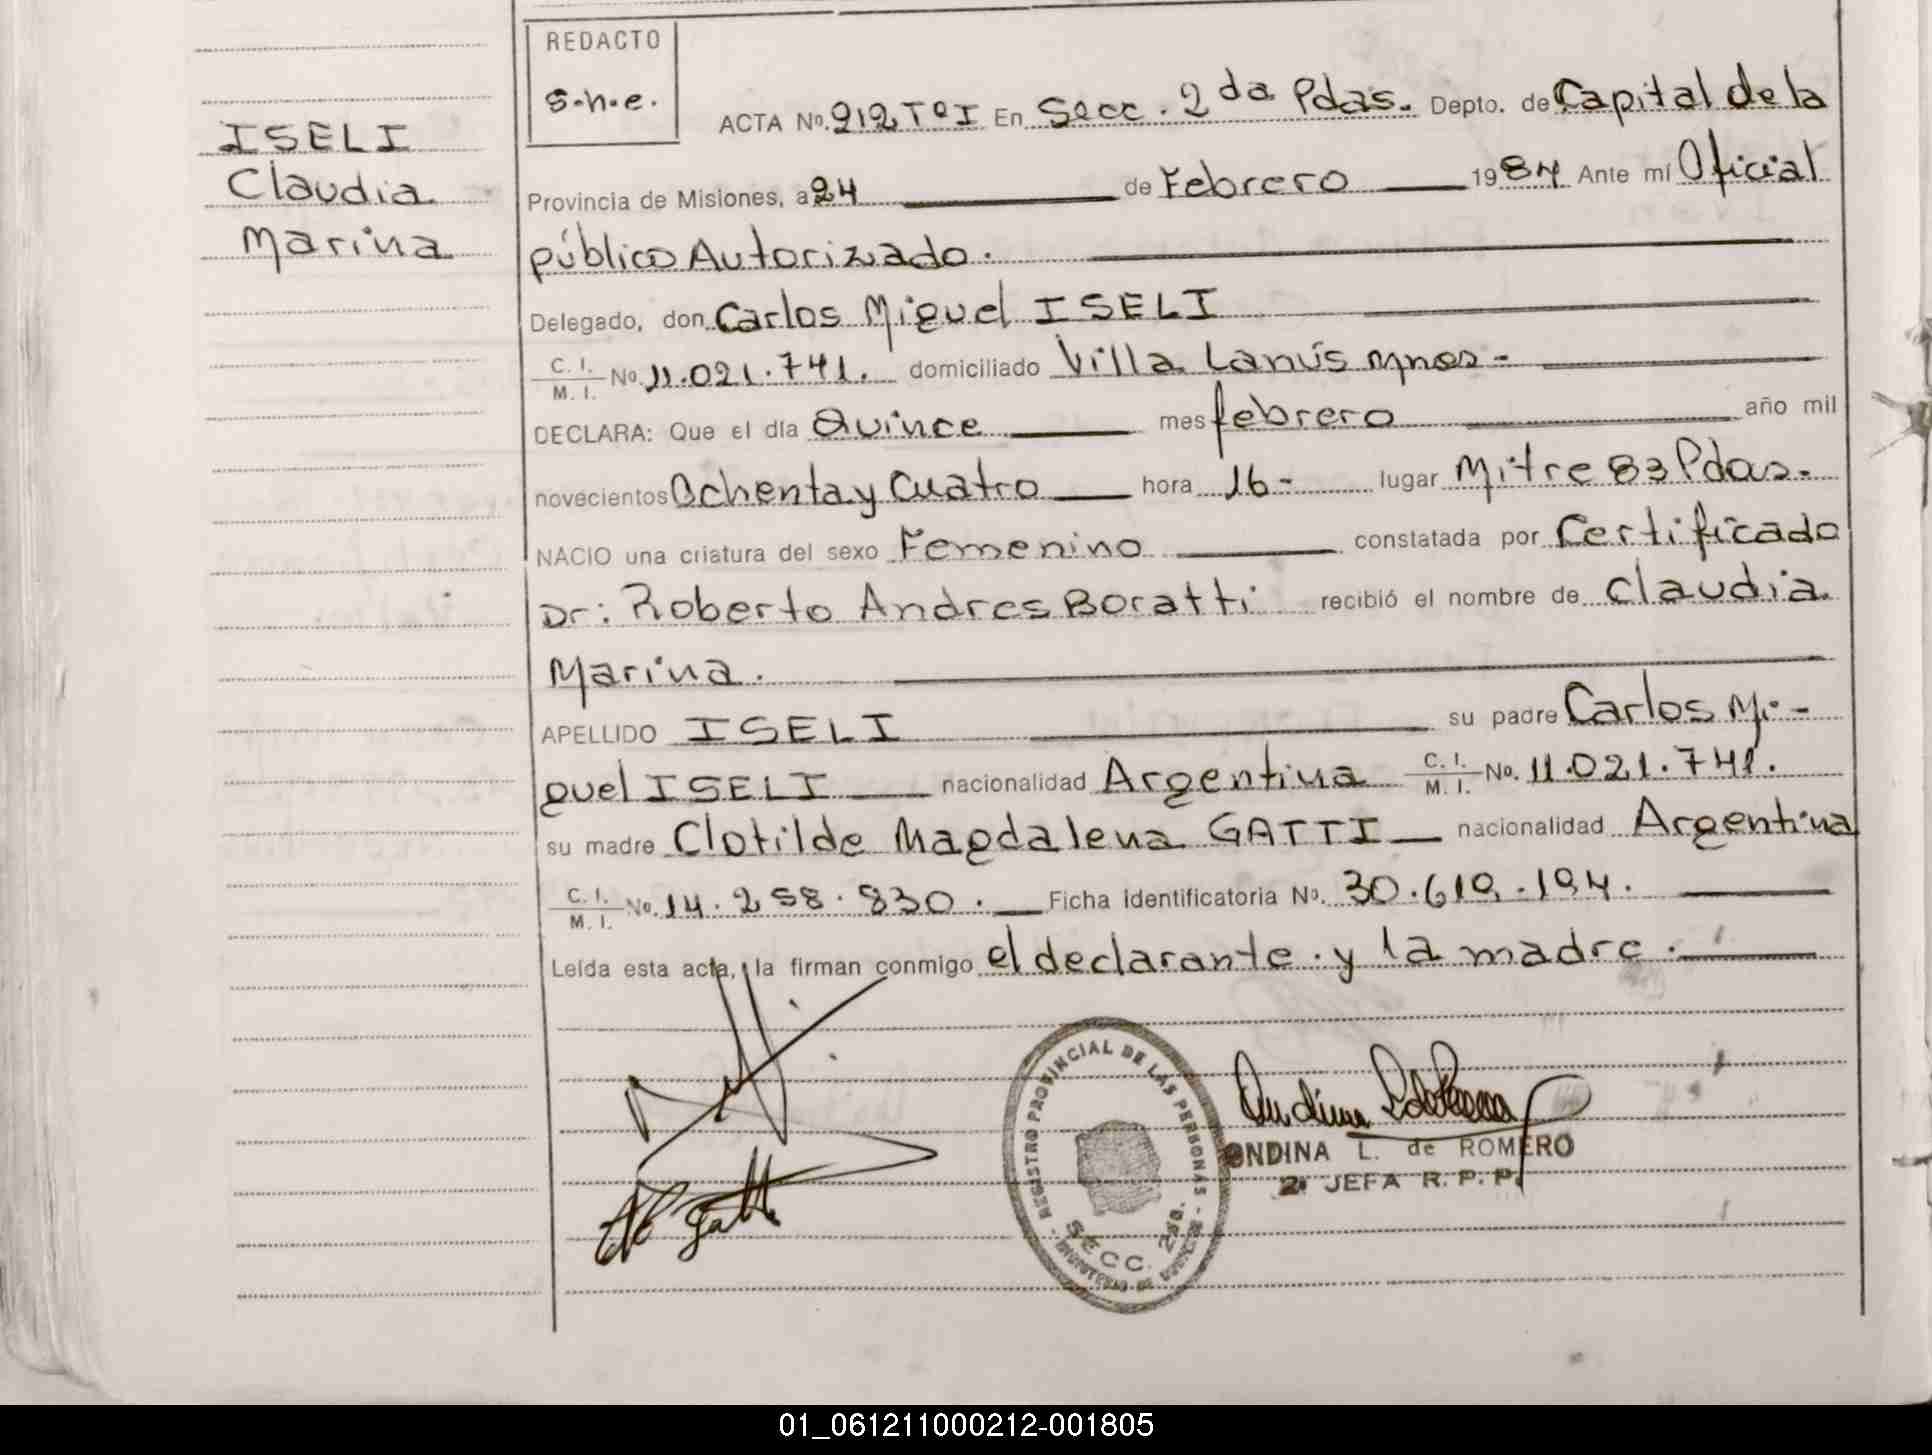 REDACTO
s.h.e.
ISELI
Claudia
Marina
ACTA Nº 212 Tº I En Secc. 2da Pdas. Depto. de Capital de la
Provincia de Misiones, a 24 de Febrero 1984 Ante mí Oficial
público Autorizado.
Delegado, don Carlos Miguel ISELI
C. I. M. I. Nº 11.021.741. domiciliado Villa Lanús Mnes-
DECLARA: Que el día Quince mes febrero año mil
novecientos Ochenta y Cuatro hora 16- lugar Mitre 83 Pdas.-
NACIO una criatura del sexo Femenino constatada por Certificado
Dr: Roberto Andres Boratti recibió el nombre de Claudia
Marina.
APELLIDO ISELI su padre Carlos Mi-
guel ISELI nacionalidad Argentina C. I. M. I. No. 11.021.741.
su madre Clotilde Magdalena GATTI nacionalidad Argentina
C. I. M. I. No. 14.258.830. Ficha identificatoria Nº. 30.619.194.
Leída esta acta, la firman conmigo el declarante y la madre.
REGISTRO PROVINCIAL DE LAS PERSONAS
SECC. 2da.
ONDINA L. de ROMERO
2ª JEFA R. P. P.
01_061211000212-001805